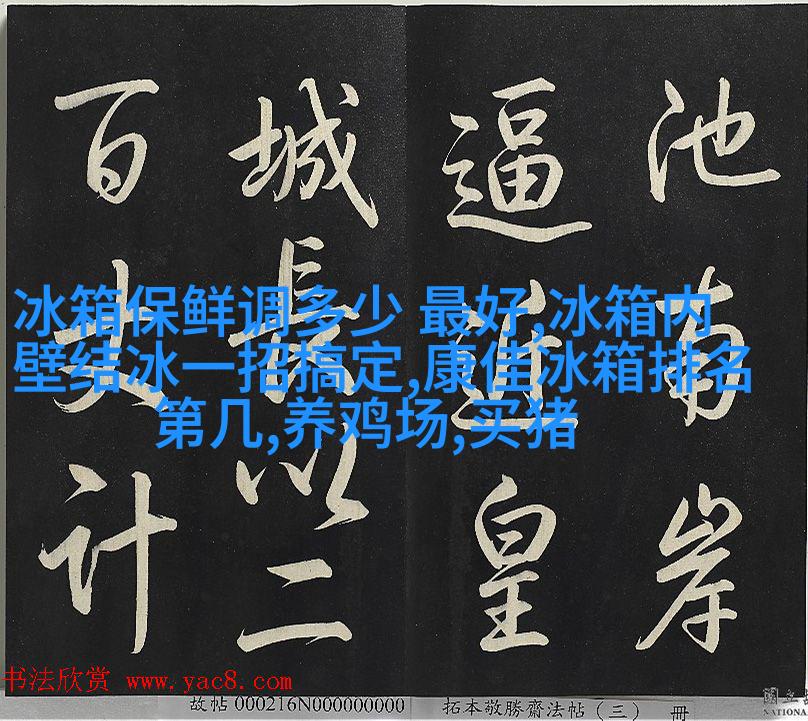 池南岸
逼皇
城長以二
百丈計
冰箱保鲜调多少 最好,冰箱内
壁结冰一招搞定,康佳冰箱排名
第几,养鸡场,买猪
书法欣赏 www.yac8.com
故帖 000216N000000000 拓本敬勝齋法帖（三） 冊
國立
NATIONA